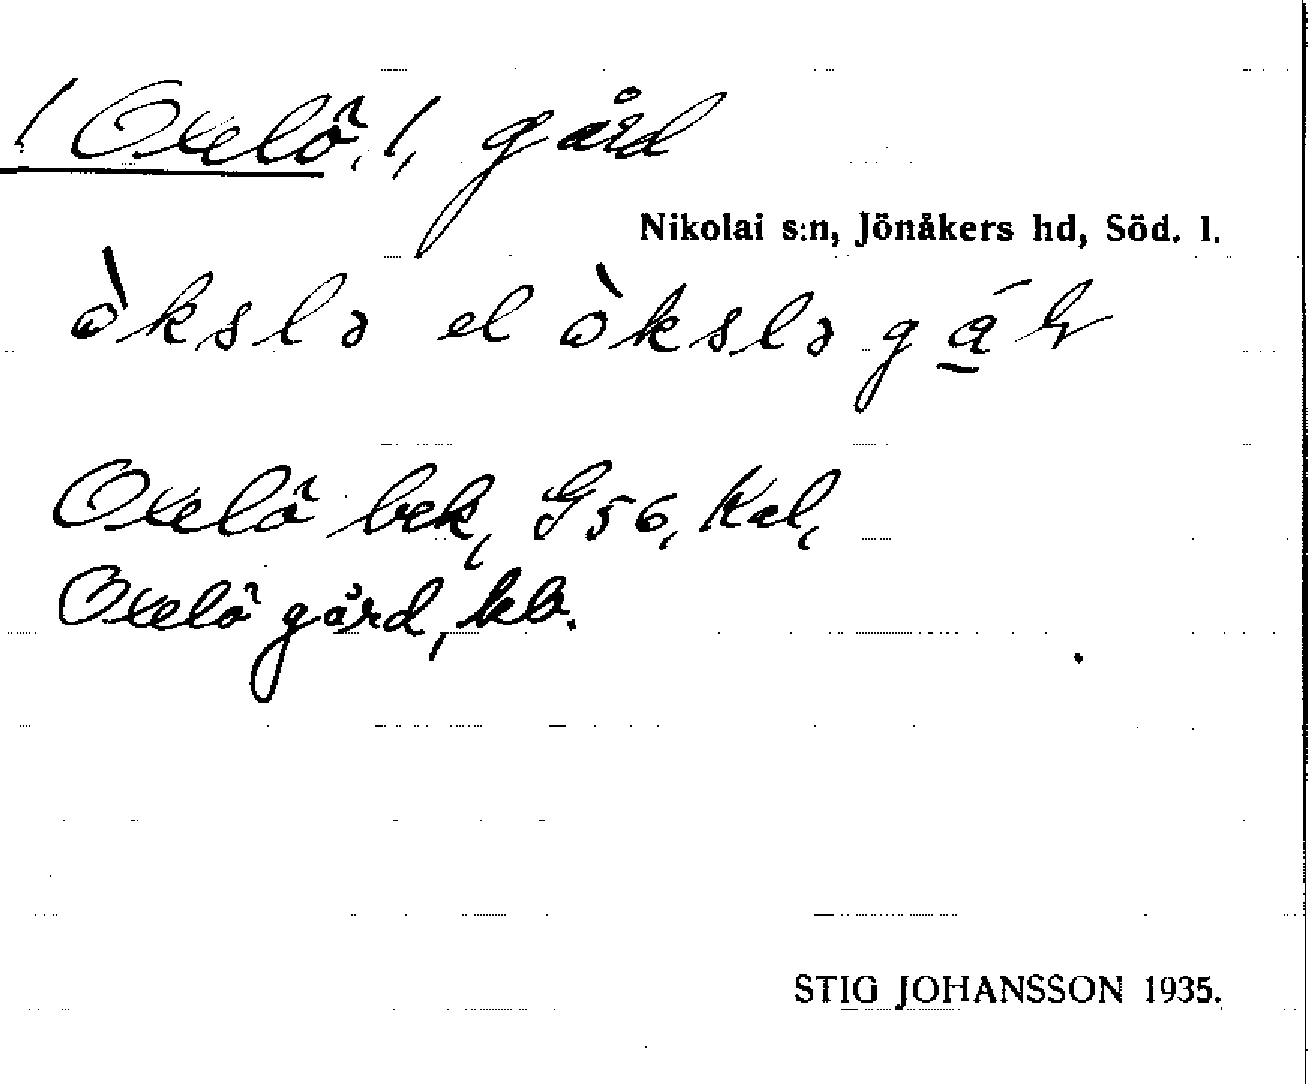 /Oxelö, /, gård
Nikolai s:n, Jönåkers hd, Söd. l.
ò̀kslə el ò̀kslə
Oxelö bek, G56, Kal,
Oxelö gård, kb.
STIG JOHANSSON 1935.